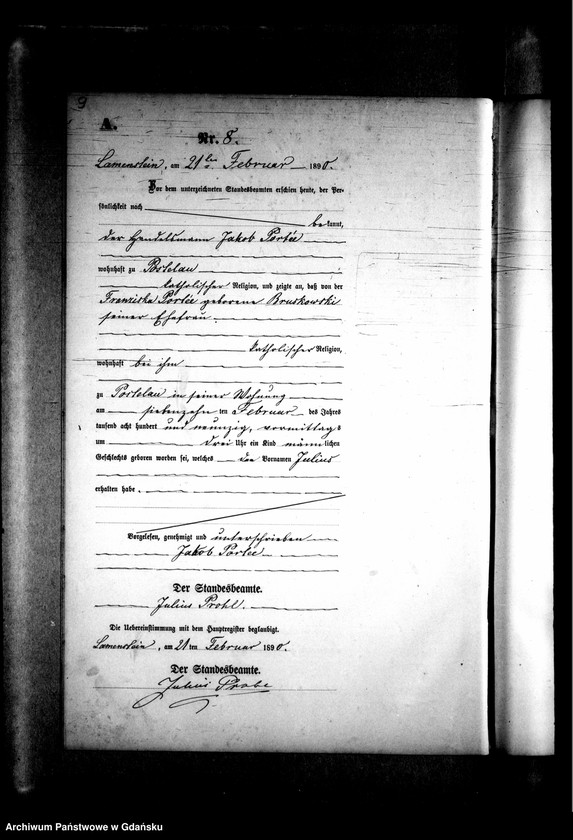 9
A.
Nr. 8.
Lamenstein, am 21ten Februar 1890.
Vor dem unterzeichneten Standesbeamten erschien heute, der Per-
sönlichkeit nach
bekannt,
der Handelsmann Jakob Portée
wohnhaft zu Postelau
katholischer Religion, und zeigte an, daß von der
Franziska Portée geborene Bruskowski
seiner Ehefrau
katholischer Religion,
wohnhaft bei ihm
zu Postelau in seiner Wohnung
am siebenzehn ten Februar des Jahres
tausend acht hundert und neunzig, vormittags
um drei Uhr ein Kind männlichen
Geschlechts geboren worden sei, welches den Vornamen Julius
erhalten habe.
Vorgelesen, genehmigt und unterschrieben
Jakob Portée
Der Standesbeamte.
Julius
Die Uebereinstimmung mit dem Hauptregister beglaubigt.
Lamenstein, am 21ten Februar 1890.
Der Standesbeamte.
Julius
Archiwum Państwowe w Gdańsku